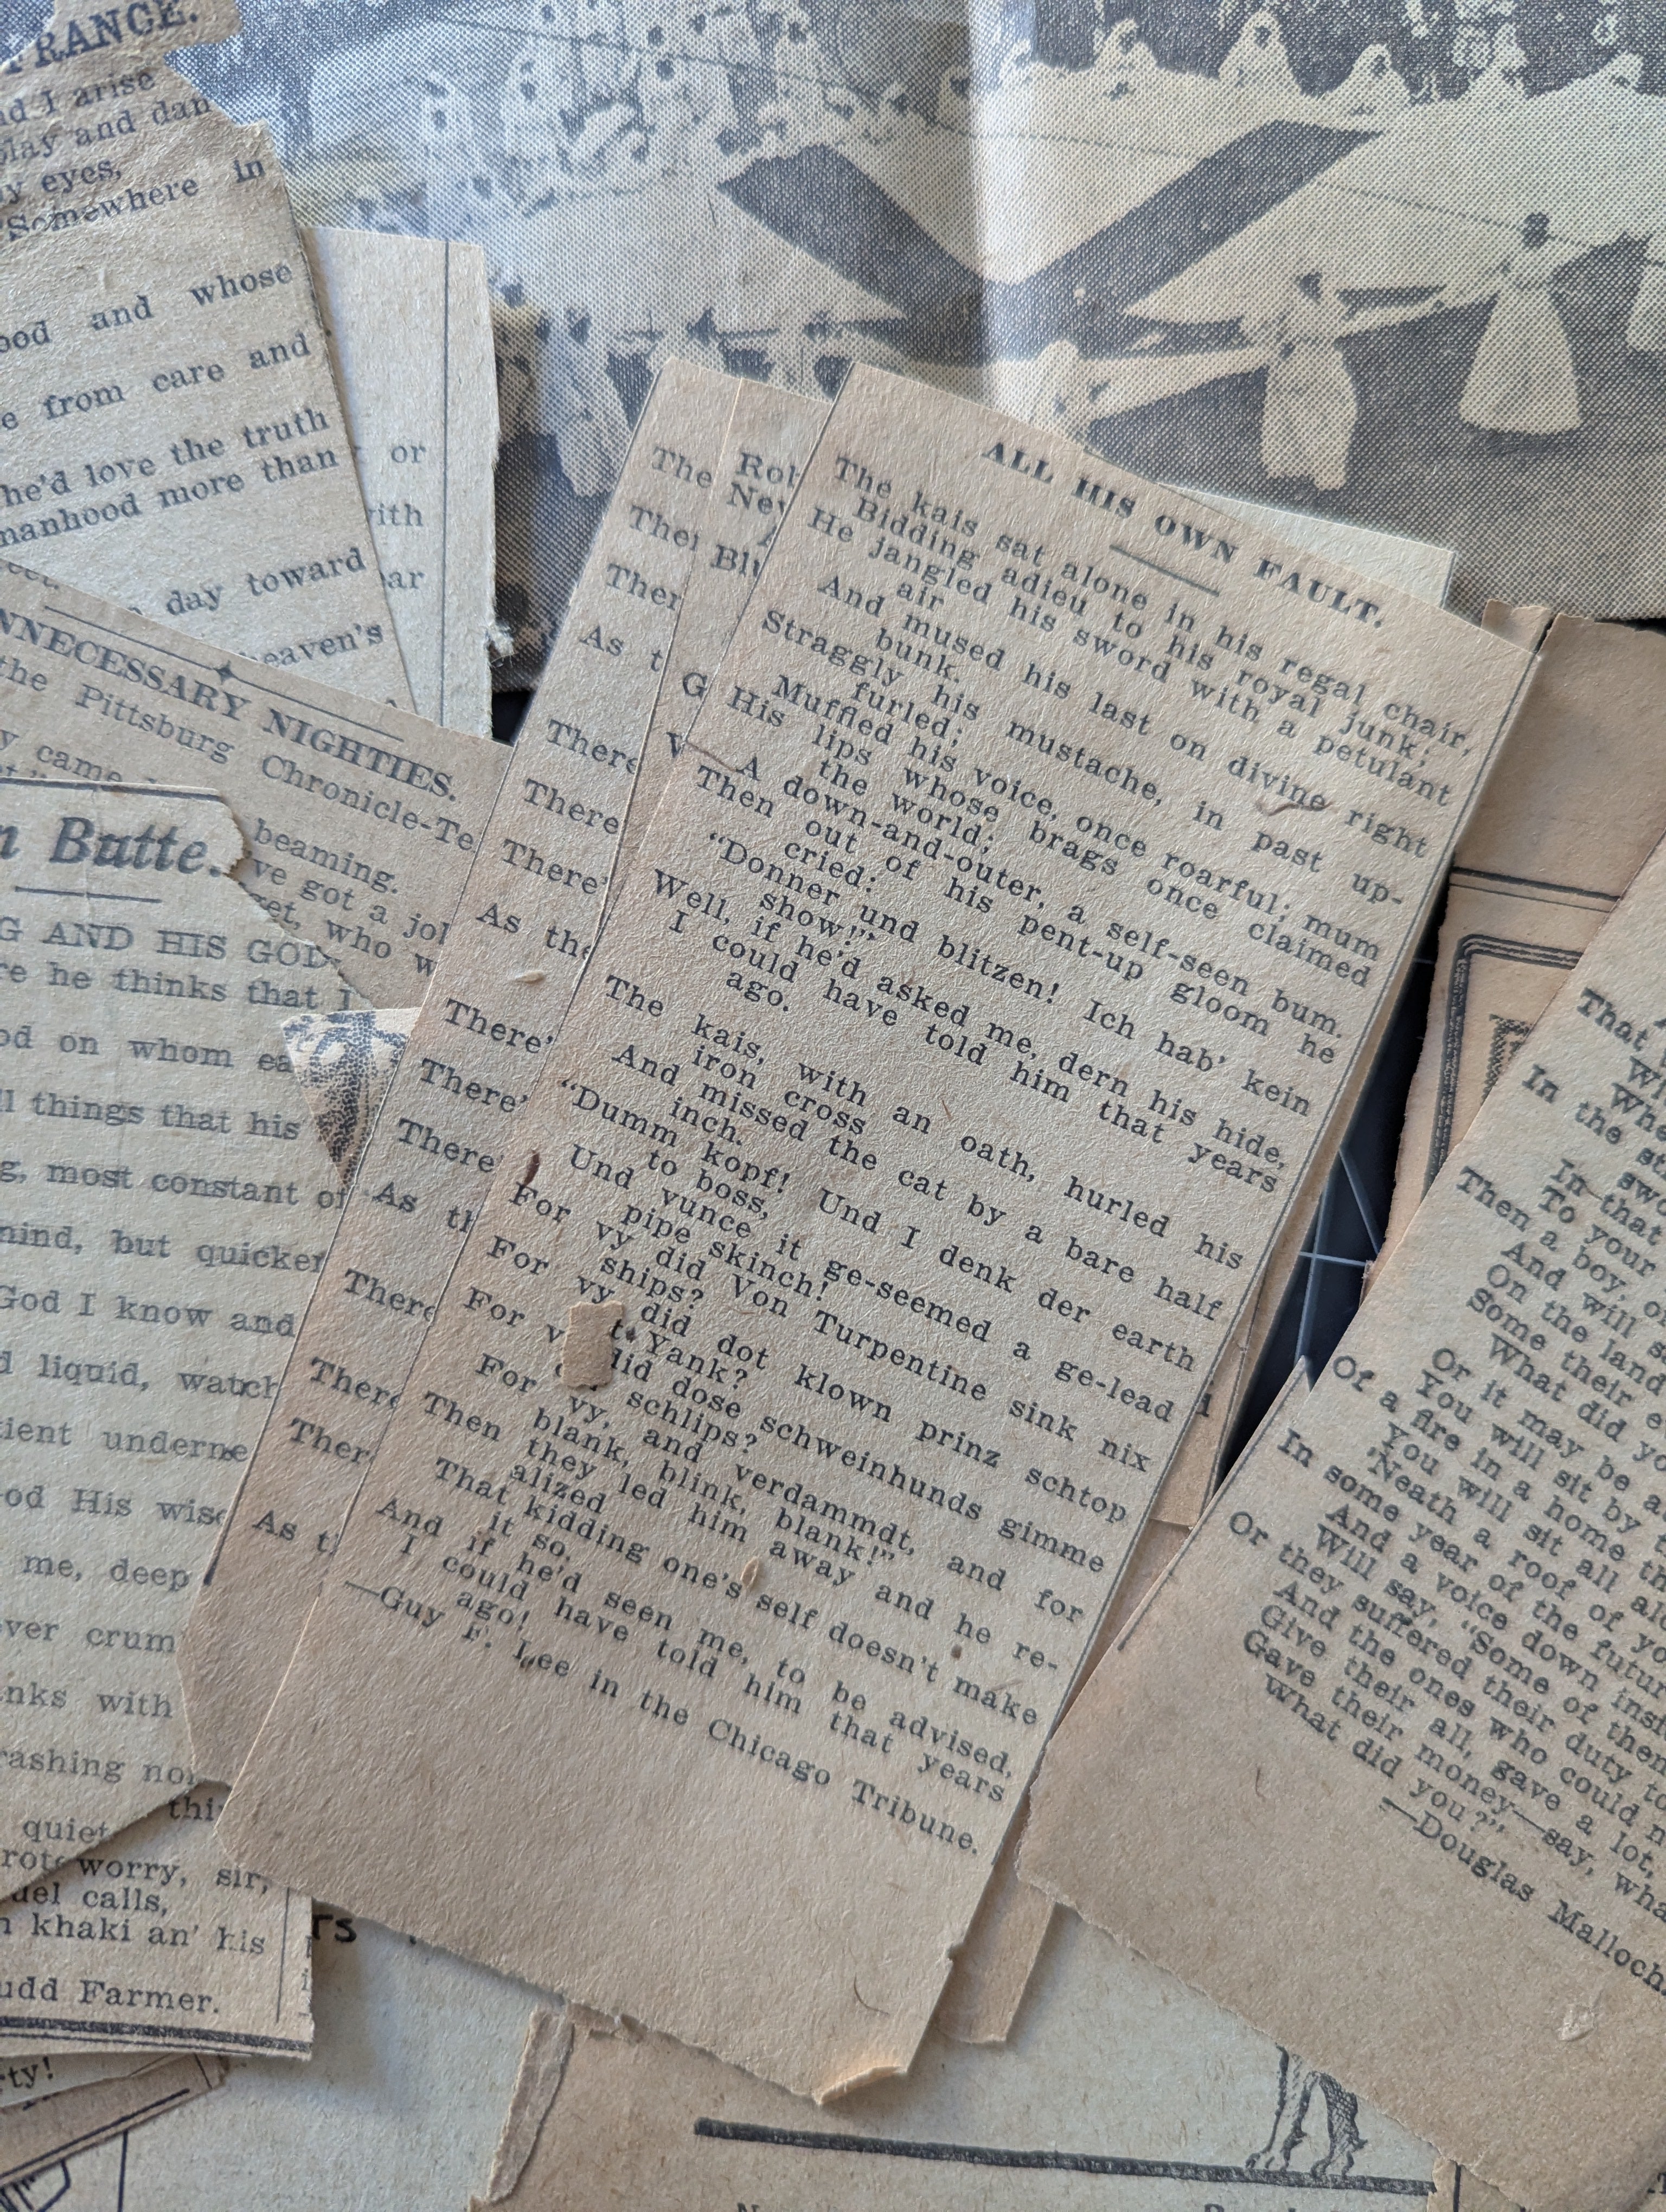 RANGE.
nd I arise
play and dan
y eyes,
"Somewhere in
ood and whose
e from care and
he'd love the truth
manhood more than
day toward
heaven's
or
with
ear
NNECESSARY NIGHTIES.
the Pittsburg Chronicle-Te
y came
beaming.
ve got a jol
get, who w
n Butte.
G AND HIS GOD
re he thinks that I
od on whom ea
ll things that his
g, most constant of
mind, but quicker
God I know and
d liquid, watch
tient underne
od His wise
me, deep
ver crum
nks with
rashing no
thi
quiet
rote worry, sir,
uel calls,
n khaki an' his
udd Farmer.
rty!
The
The
Ther
As t
There
There
There'
As the
There'
There'
There'
As th
There
There
Ther
As t
Rob
New
A
Blu
G
V
ALL HIS OWN FAULT.
The kais sat alone in his regal chair,
Bidding adieu to his royal junk;
He jangled his sword with a petulant
air
And mused his last on divine right
bunk.
Straggly his mustache, in past up-
furled;
Muffled his voice, once roarful; mum
His lips whose brags once claimed
the world;
A down-and-outer, a self-seen bum.
Then out of his pent-up gloom he
cried:
"Donner und blitzen! Ich hab' kein
show!"
Well, if he'd asked me, dern his hide,
I could have told him that years
ago.
The kais, with an oath, hurled his
iron cross
And missed the cat by a bare half
inch.
"Dumm kopf! Und I denk der earth
to boss,
Und vunce it ge-seemed a ge-lead
pipe skinch!
For vy did Von Turpentine sink nix
ships?
For vy did dot klown prinz schtop
t Yank?
For v did dose schweinhunds gimme
schlips?
For vy, and verdammdt, and for
blank, blink, blank!"
Then they led him away and he re-
alized
That kidding one's self doesn't make
it so.
And if he'd seen me, to be advised,
I could have told him that years
ago!
—Guy F. Lee in the Chicago Tribune.
That
Wi
Whe
In the st
swo
In that
To your
Then a boy, or
And will s
On the land
Some their e
What did yo
Or it may be a
You will sit by t
Of a fire in a home th
You will sit all alo
'Neath a roof of yo
In some year of the futur
And a voice down insi
Will say, "Some of them
Or they suffered their duty to
And the ones who could n
Give their all, gave a lot,
Gave their money—say, wha
What did you?"
—Douglas Malloch